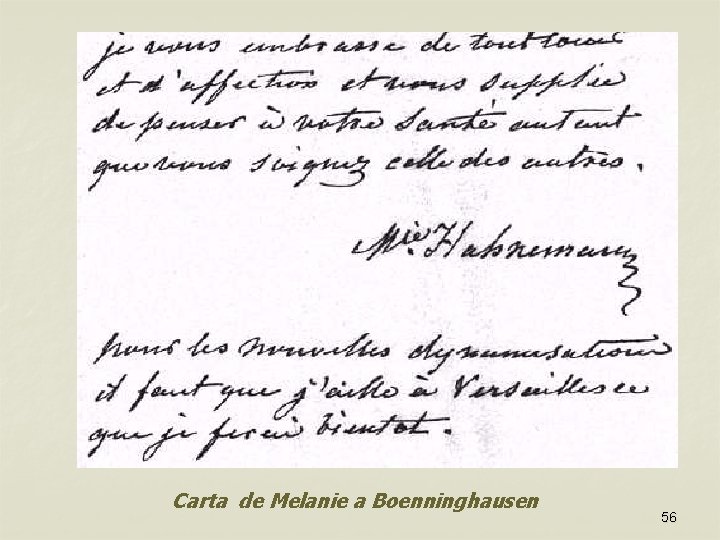 je vous embrasse de tout coeur
et d'affection et vous supplie
de penser à votre santé autant
que vous soignez celle des autres.
Mie Hahnemann
pour les nouvelles dynamisations
il faut que j'aille à Versailles ce
que je ferai bientot.
Carta de Melanie a Boenninghausen
56